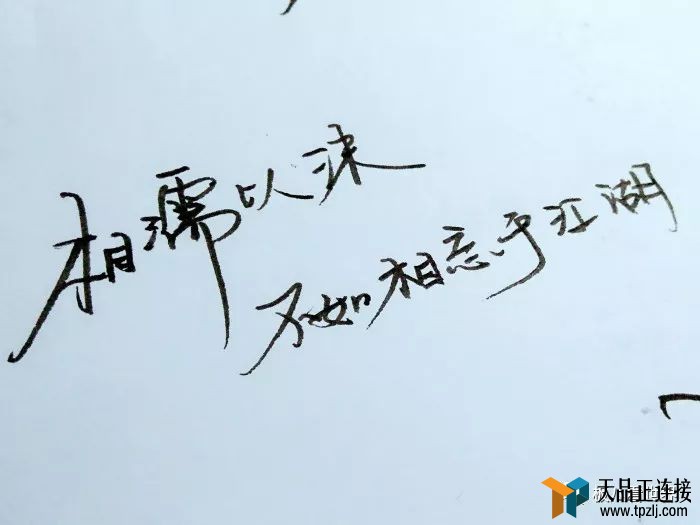 相濡以沫
不如相忘乎江湖
天品正连接
www.tpzlj.com